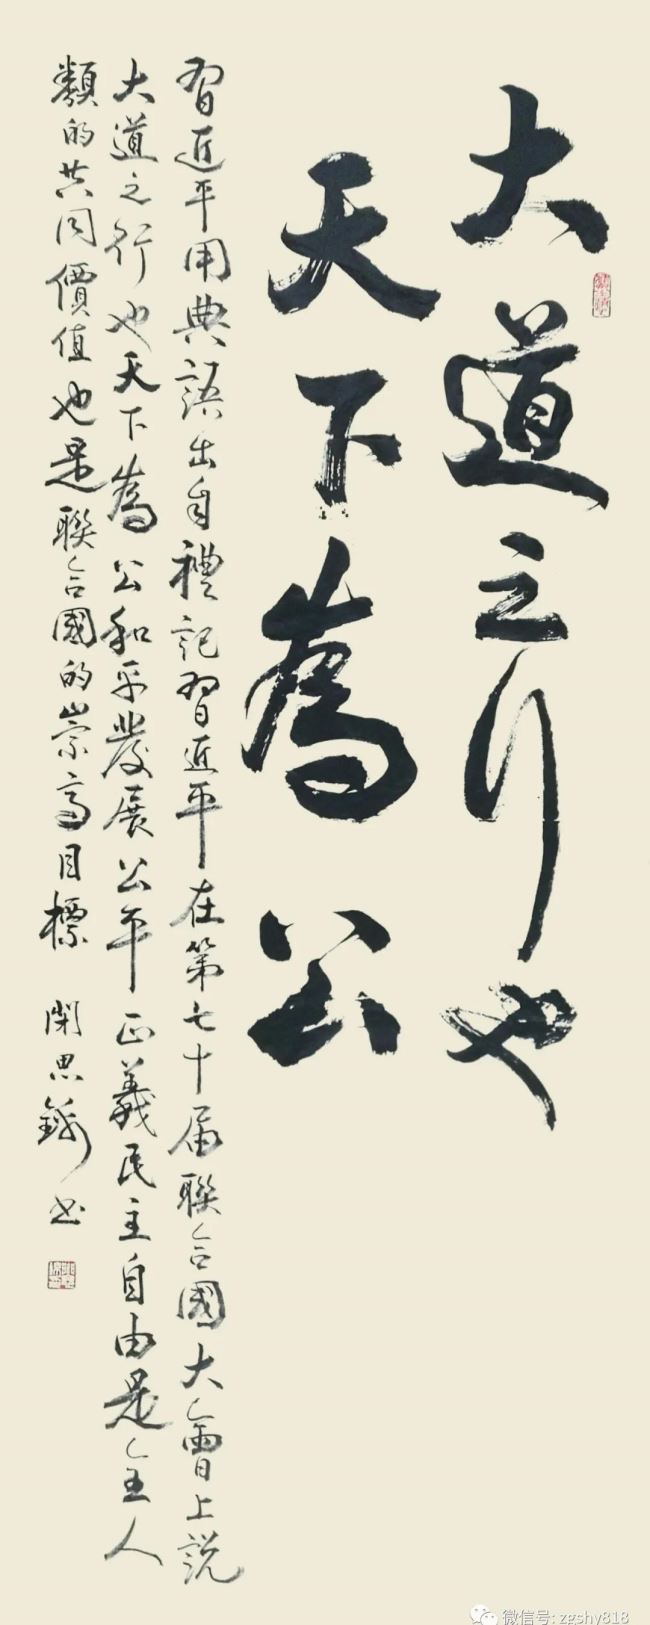 大道之行也
天下為公
習近平用典語出自禮記習近平在第七十届聯合國大會上説
大道之行也天下為公和平發展公平正義民主自由是全人
類的共同價值也是聯合國的崇高目標 閑思鏘书
微信号: zgshy818